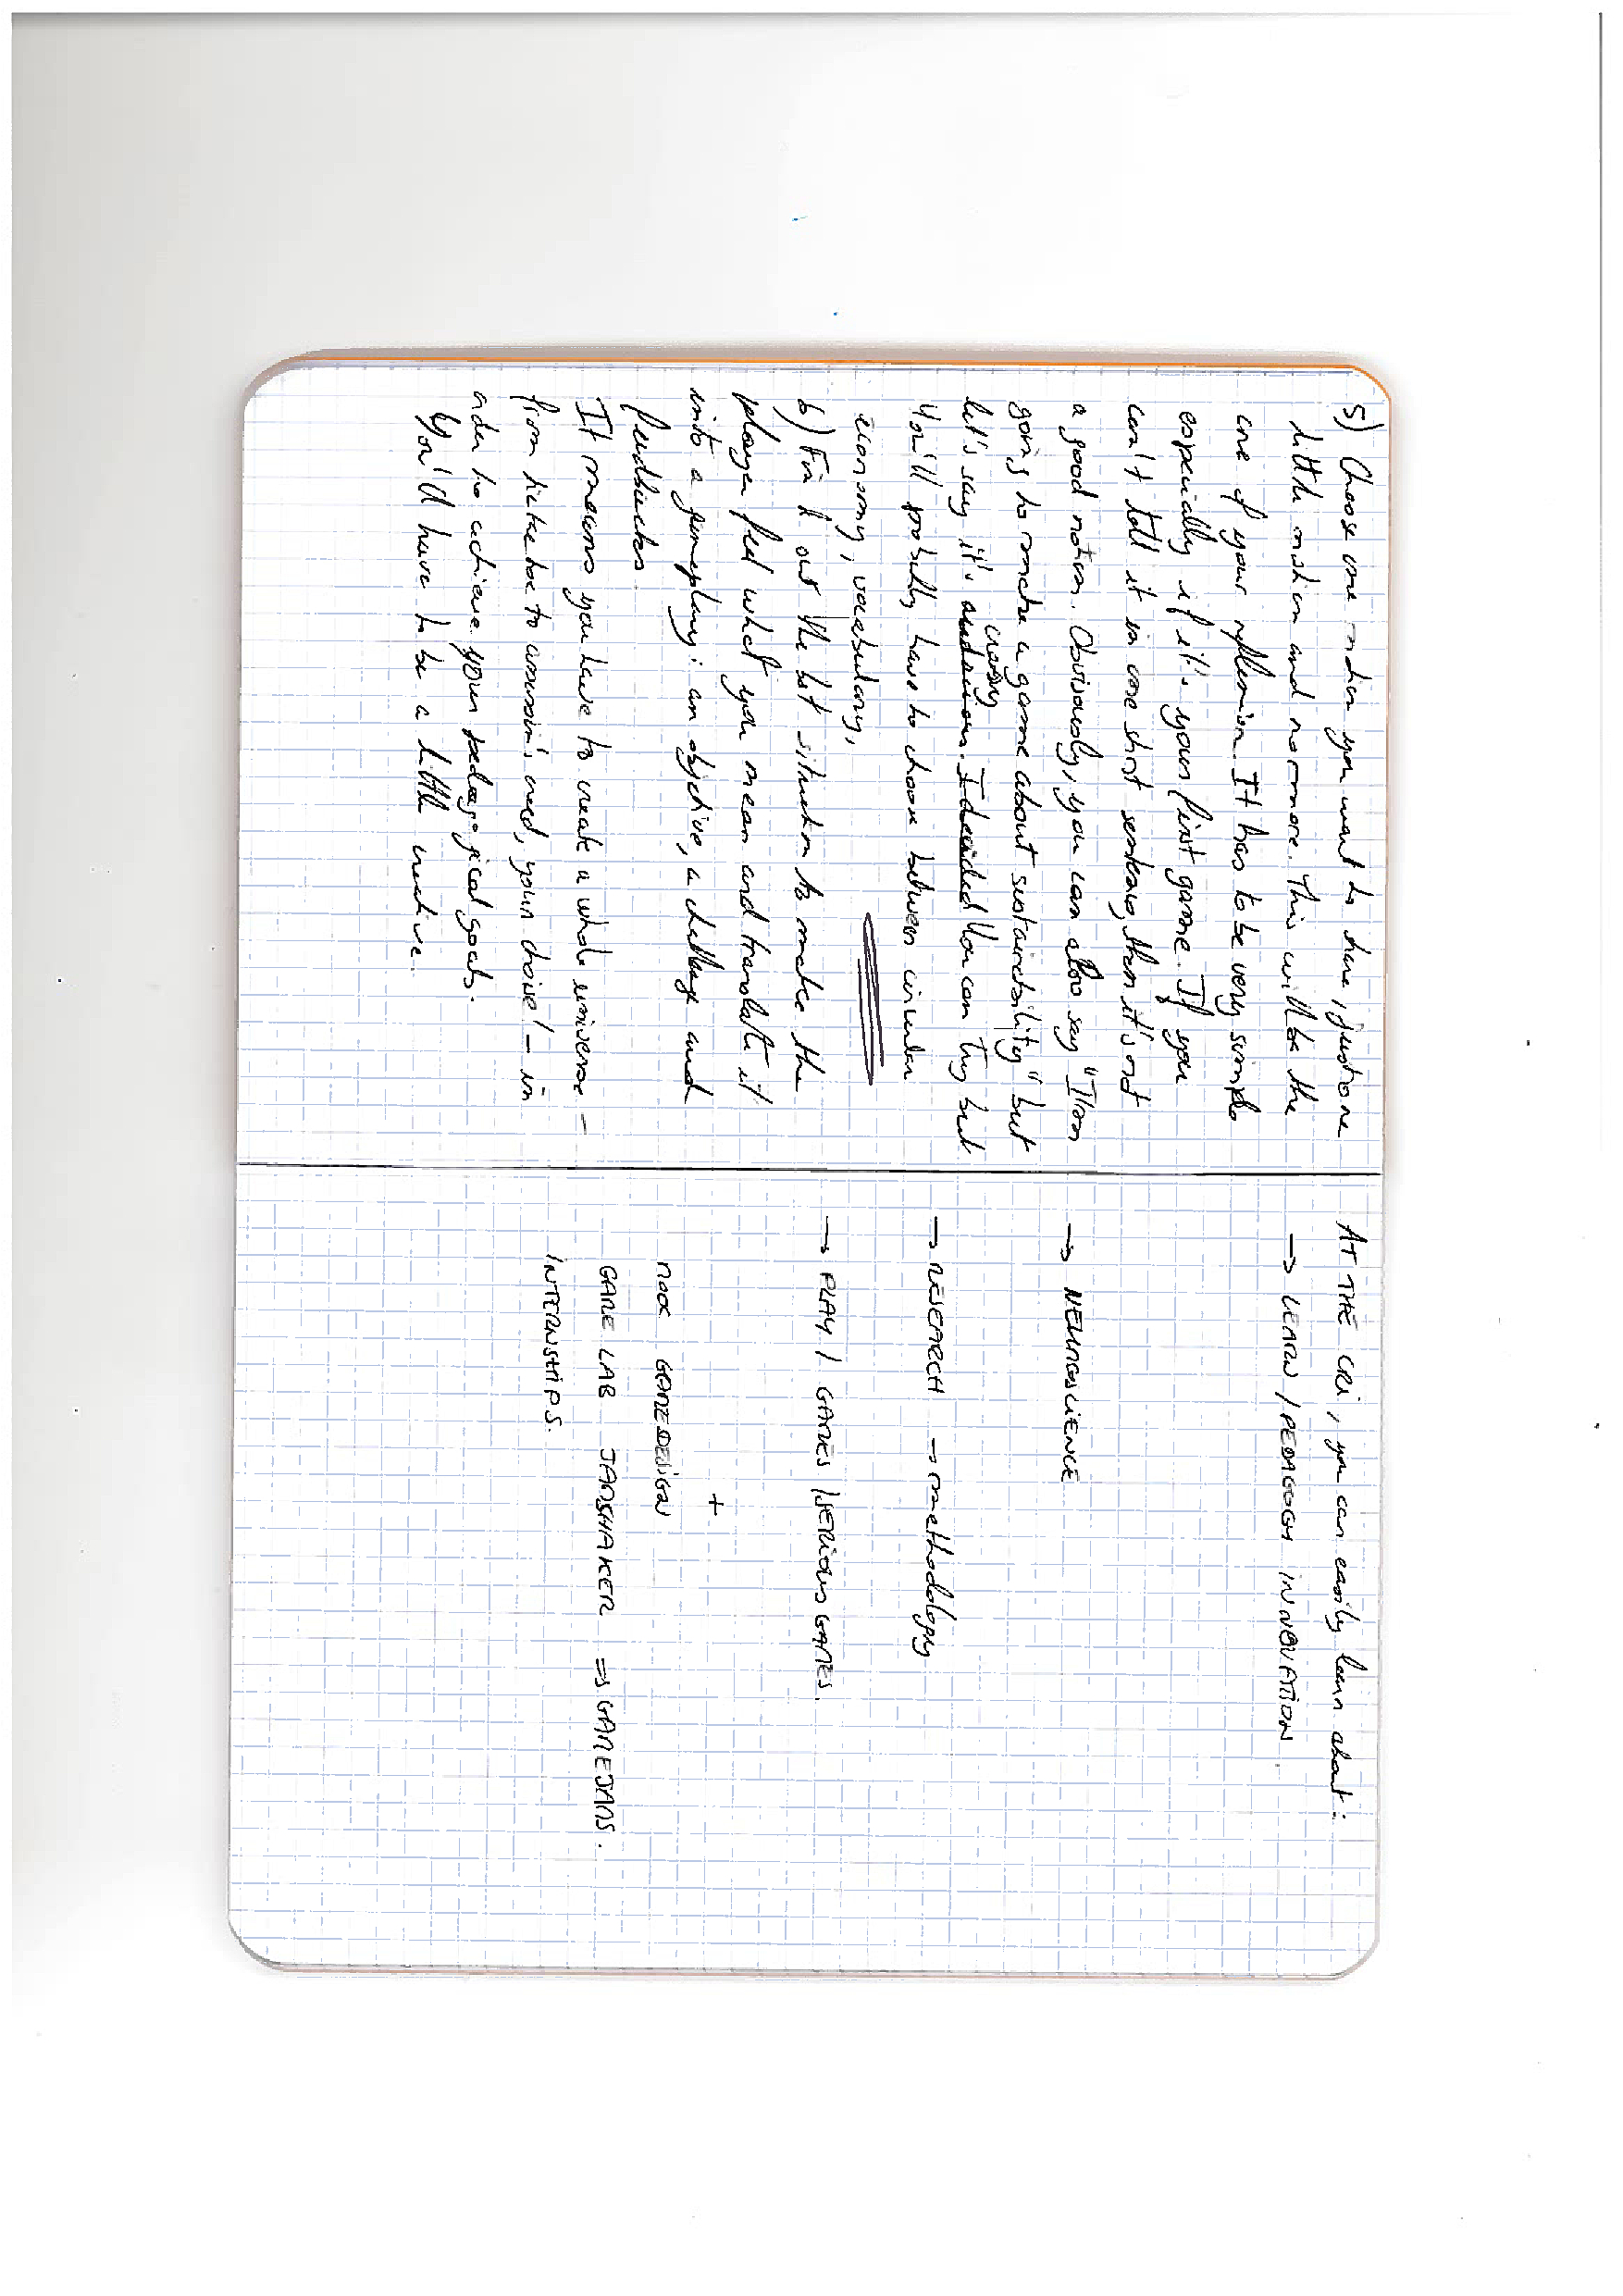 5) Choose one notion you want to have, just one
little notion and no more. This will be the
core of your reflexion. It has to be very simple
especially if it's your first game. If you
can't tell it in one short sentence, then it's not
a good notion. Obviously, you can also say "I'm
going to make a game about sustainability" but
let's say it's crazy. I decided You can try but
You'll probably have to choose between circular
economy, vocabulary,
6) Find out the best situation to make the
player feel what you mean and translate it
into a gameplay: an objective, a challenge and
feedbacks.
It means you have to create a whole universe –
from tic tac toe to assassin's creed, your choice! – in
order to achieve your pedagogical goals.
You'll have to be a little creative.
AT THE CRI, you can easily learn about:
→ LEARN / PEDAGOGY INNOVATION
→ NEUROSCIENCE
→ RESEARCH → methodology
→ PLAY / GAMES / SERIOUS GAMES.
+
MOOC GAME DESIGN
GAME LAB JAMSHAKER ⇒ GAMEJAMS.
INTERNSHIPS.